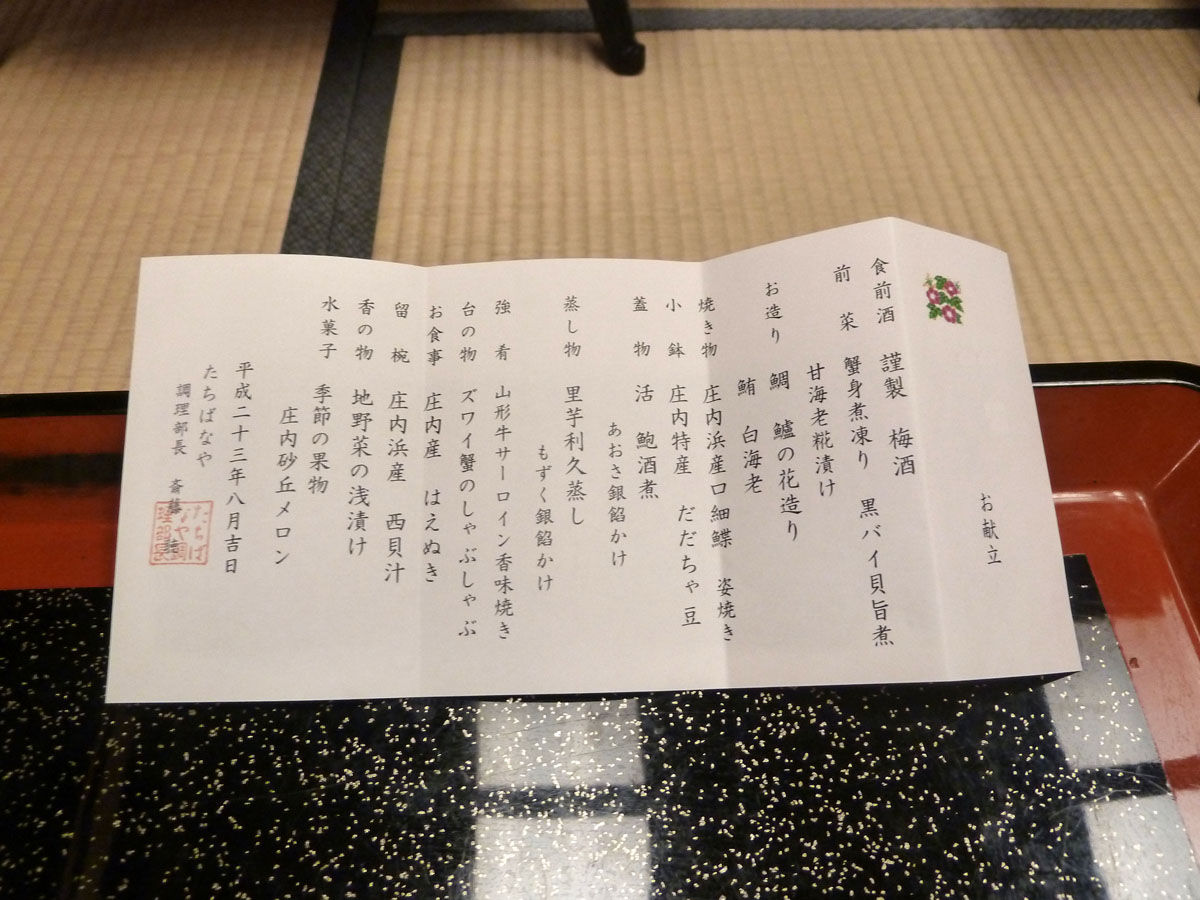 お献立
食前酒 謹製 梅酒
前菜 蟹身煮凍り 黒バイ貝旨煮
甘海老糀漬け
お造り 鯛 鱸の花造り
鮪 白海老
焼き物 庄内浜産口細鰈 姿焼き
小鉢 庄内特産 だだちゃ豆
蓋物 活 鮑酒煮
あおさ銀餡かけ
蒸し物 里芋利久蒸し
もずく銀餡かけ
強肴 山形牛サーロイン香味焼き
台の物 ズワイ蟹のしゃぶしゃぶ
お食事 庄内産 はえぬき
留椀 庄内浜産 西貝汁
香の物 地野菜の浅漬け
水菓子 季節の果物
庄内砂丘メロン
平成二十三年八月吉日
たちばなや
調理部長 斎藤
たちば
なや調
理部長